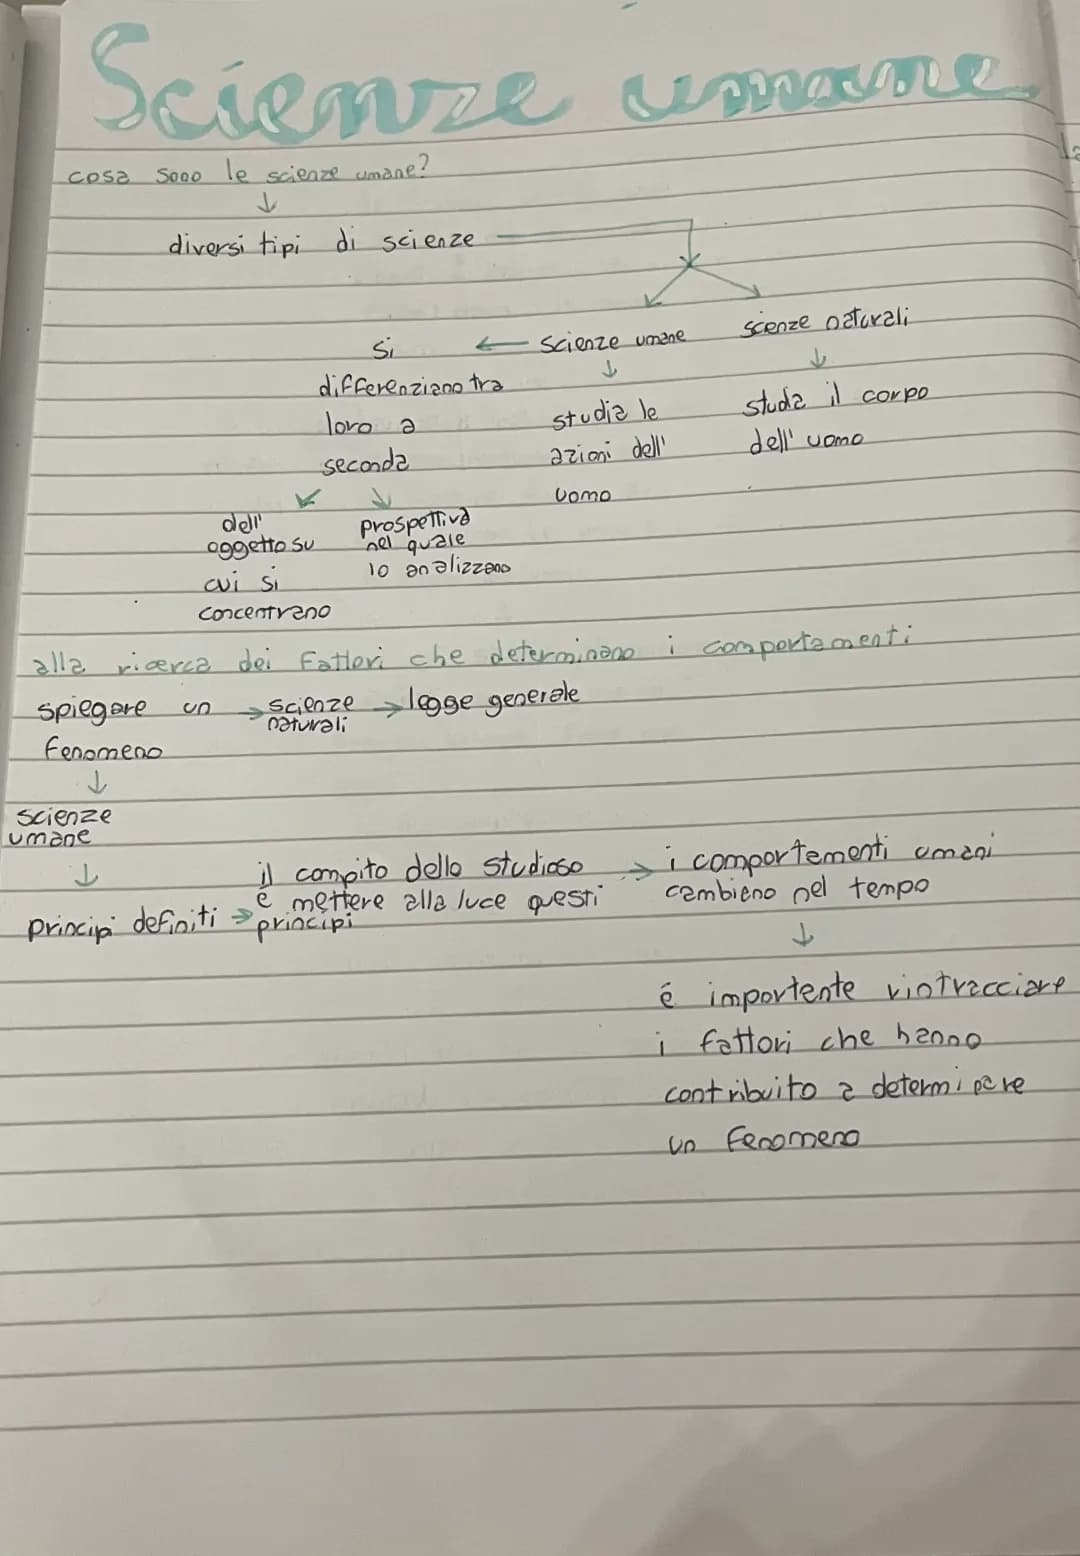 Scienze umane
cosa sono le scienze umane?
↓
diversi tipi di scienze
scienze umane
↓
studia le
azioni dell'
uomo
scenze naturali
↓
studa il corpo
dell' uomo
←
si
differenziano tra
loro a
seconda
dell'
oggetto su
cui si
concentrano
prospettiva
nel quale
lo analizzano
alla ricerca dei fattori che determinano i comportamenti
spiegare un
fenomeno
→ scienze
naturali
→ legge generale
↓
scienze
umane
↓
principi definiti →
il compito dello studioso
é mettere alla luce questi
principi
→ i comportamenti umani
cambieno nel tempo
↓
é importante rintracciare
i fattori che hanno
contribuito a determinare
un fenomeno